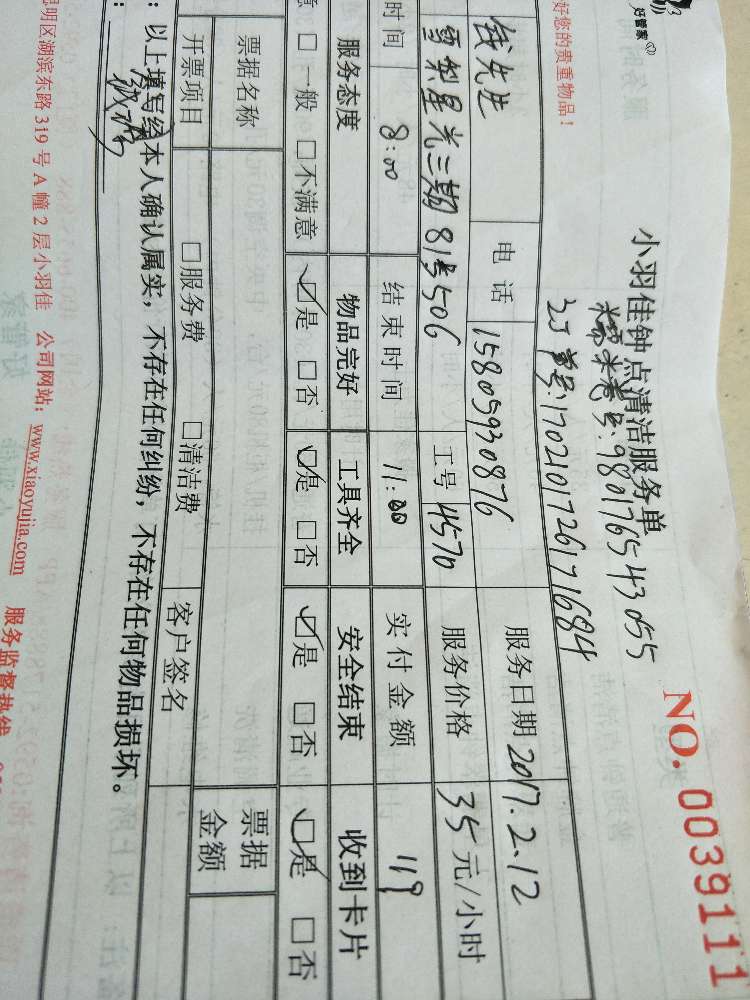 好管家
好您的贵重物品！
小羽佳钟点清洁服务单
NO. 0039111
券号:980176543055
订单号:1702101726171684
钱先生 电话 15805930876 服务日期 2017.2.12
雪梨星光三期81号506 工号 4570 服务价格 35元/小时
时间 8:00 结束时间 11:00 实付金额 119
服务态度 物品完好 工具齐全 安全结束 收到卡片
意 □一般 □不满意 ☑是 □否 ☑是 □否 ☑是 □否 ☑是 □否
票据名称 票据金额
开票项目 □服务费 □清洁费 客户签名
：以上填写经本人确认属实，不存在任何纠纷，不存在任何物品损坏。
思明区湖滨东路319号A幢2层小羽佳 公司网站：www.xiaoyujia.com 服务监督热线